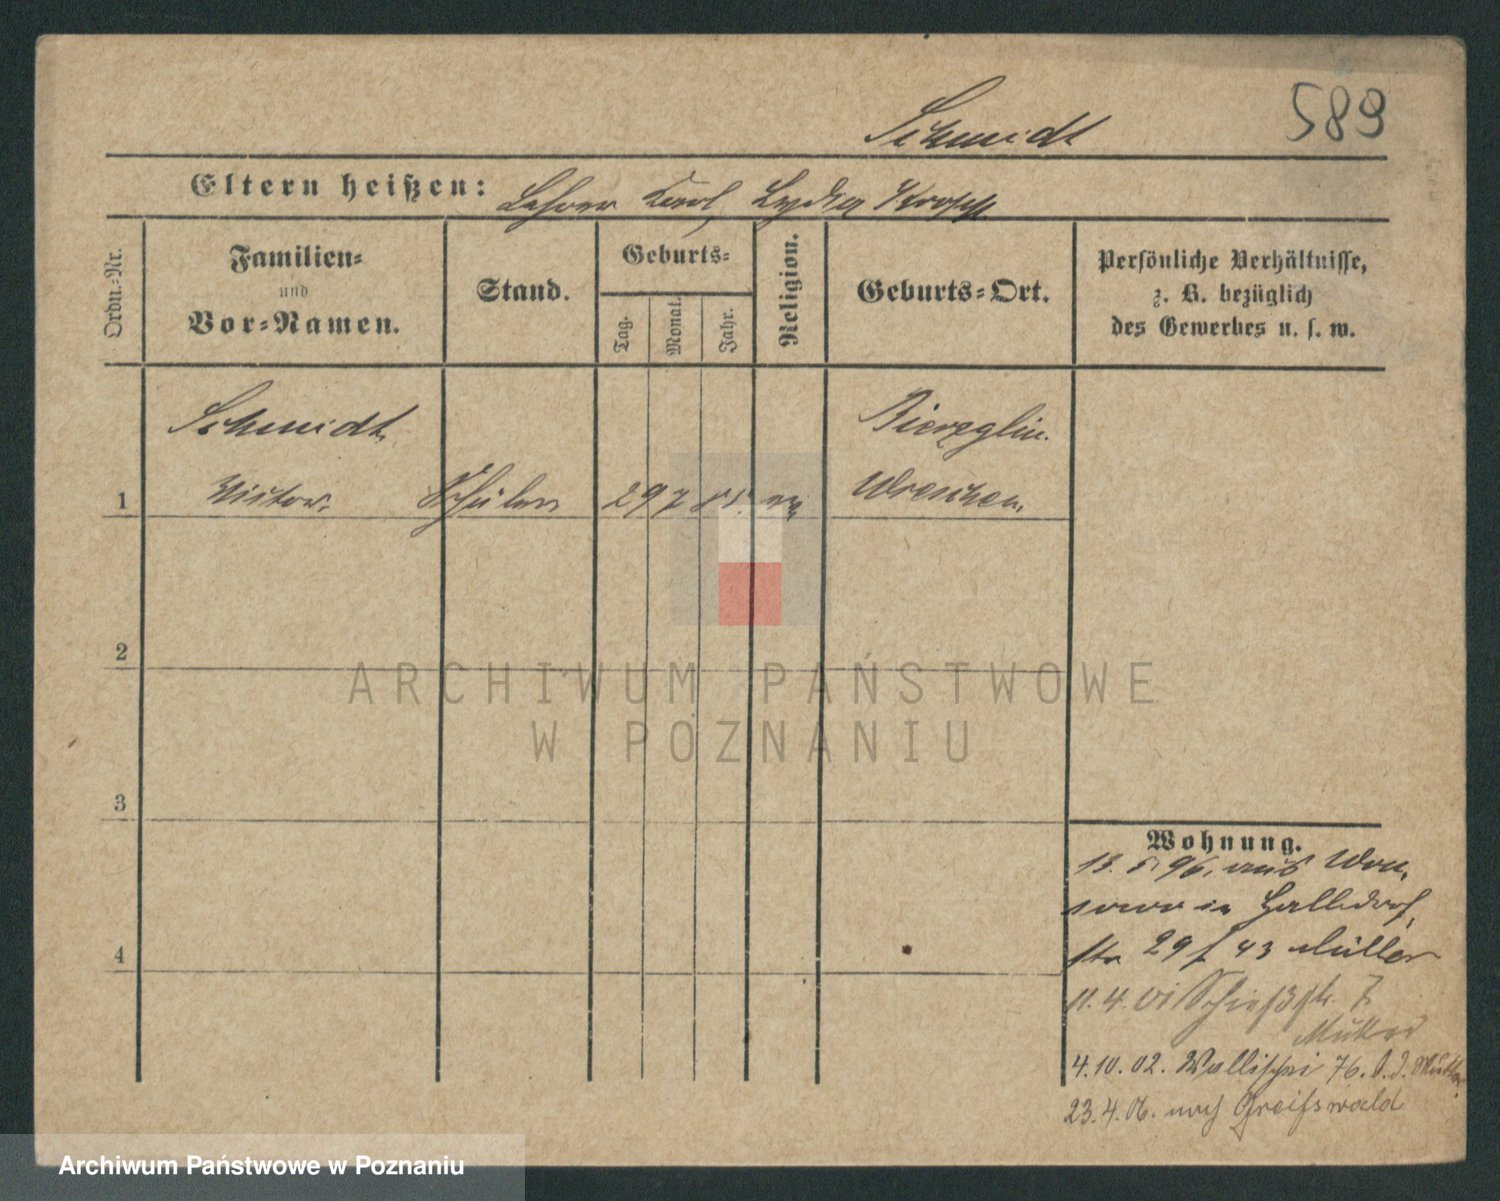 589
Schmidt
Eltern heißen: Lehrer Karl, Lydia
Ordn.-Nr.
Familien-
und
Vor-Namen.
Stand.
Geburts-
Tag.
Monat.
Jahr.
Religion.
Geburts-Ort.
Persönliche Verhältnisse,
z. B. bezüglich
des Gewerbes u. s. w.
Schmidt
Bierzglin.
1 Victor. Schüler 29 7 85. Wreschen.
2
3
4
Wohnung.
13. 5. 96. aus Won-
sowo in Halbdorf-
str 29 f 43 Müller
11. 4. 01 Schießstr. 7
Mutter
4.10.02. Wallischei 76. b. d. Mutter
23.4.06. nach Greifswald
ARCHIWUM PAŃSTWOWE
W POZNANIU
Archiwum Państwowe w Poznaniu